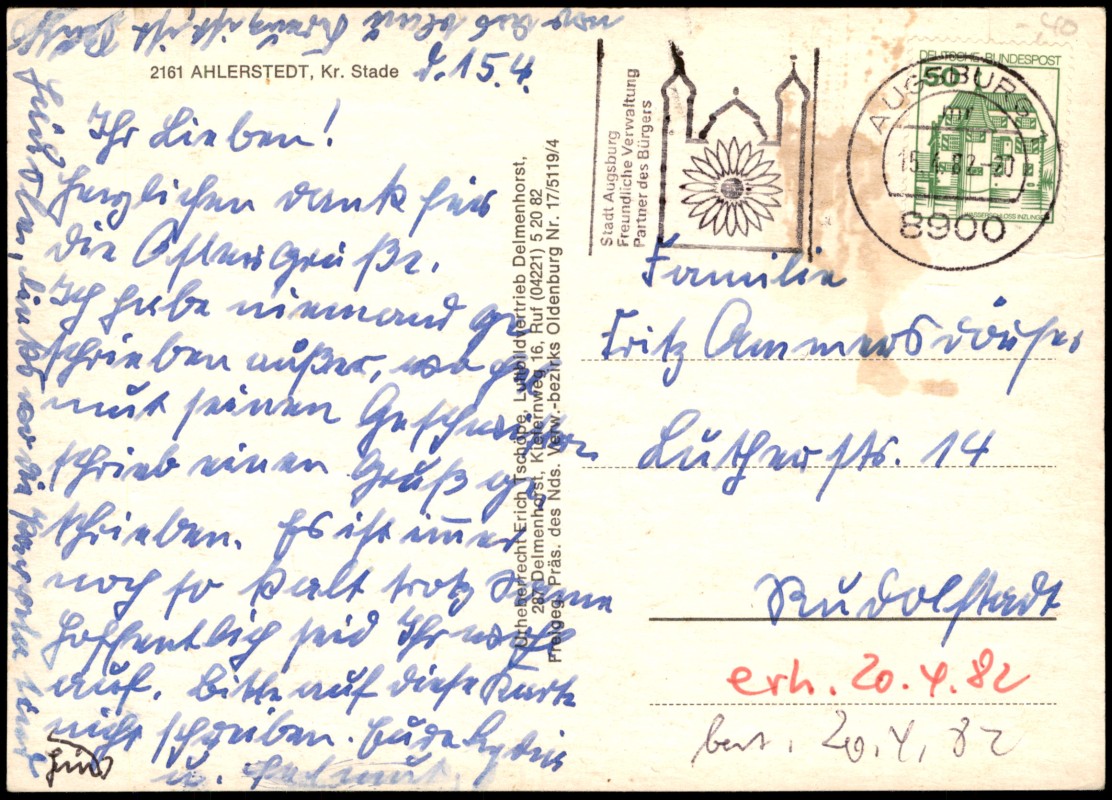 2161 AHLERSTEDT, Kr. Stade
d. 15.4.
Ihr Lieben!
Herzlichen Dank für
die Ostergrüße.
Ich habe niemand ge
schrieben außer, wo
mut seinen Geschwistern
schrieb einen Gruß ge
schrieben. Es ist immer
noch so kalt trotz Sonne
Hoffentlich seid Ihr
auf. Bitte auf diese Karte
nicht schreiben. Eure
u. Helmut.
Urheberrecht Erich Tschöpe, Luftbildvertrieb Delmenhorst,
287 Delmenhorst, Kiefernweg 16, Ruf (04221) 5 20 82
Freigeg. Präs. des Nds. Verw.-bezirks Oldenburg Nr. 17/5119/4
Stadt Augsburg
Freundliche Verwaltung
Partner des Bürgers
-40
DEUTSCHE BUNDESPOST
50
WASSERSCHLOSS INZLINGEN
AUGSBURG
15.4.82-20
8900
Familie
Fritz Ammersdörfer
Lutherstr. 14
Rudolstadt
erh. 20.4.82
beant. 20.4.82